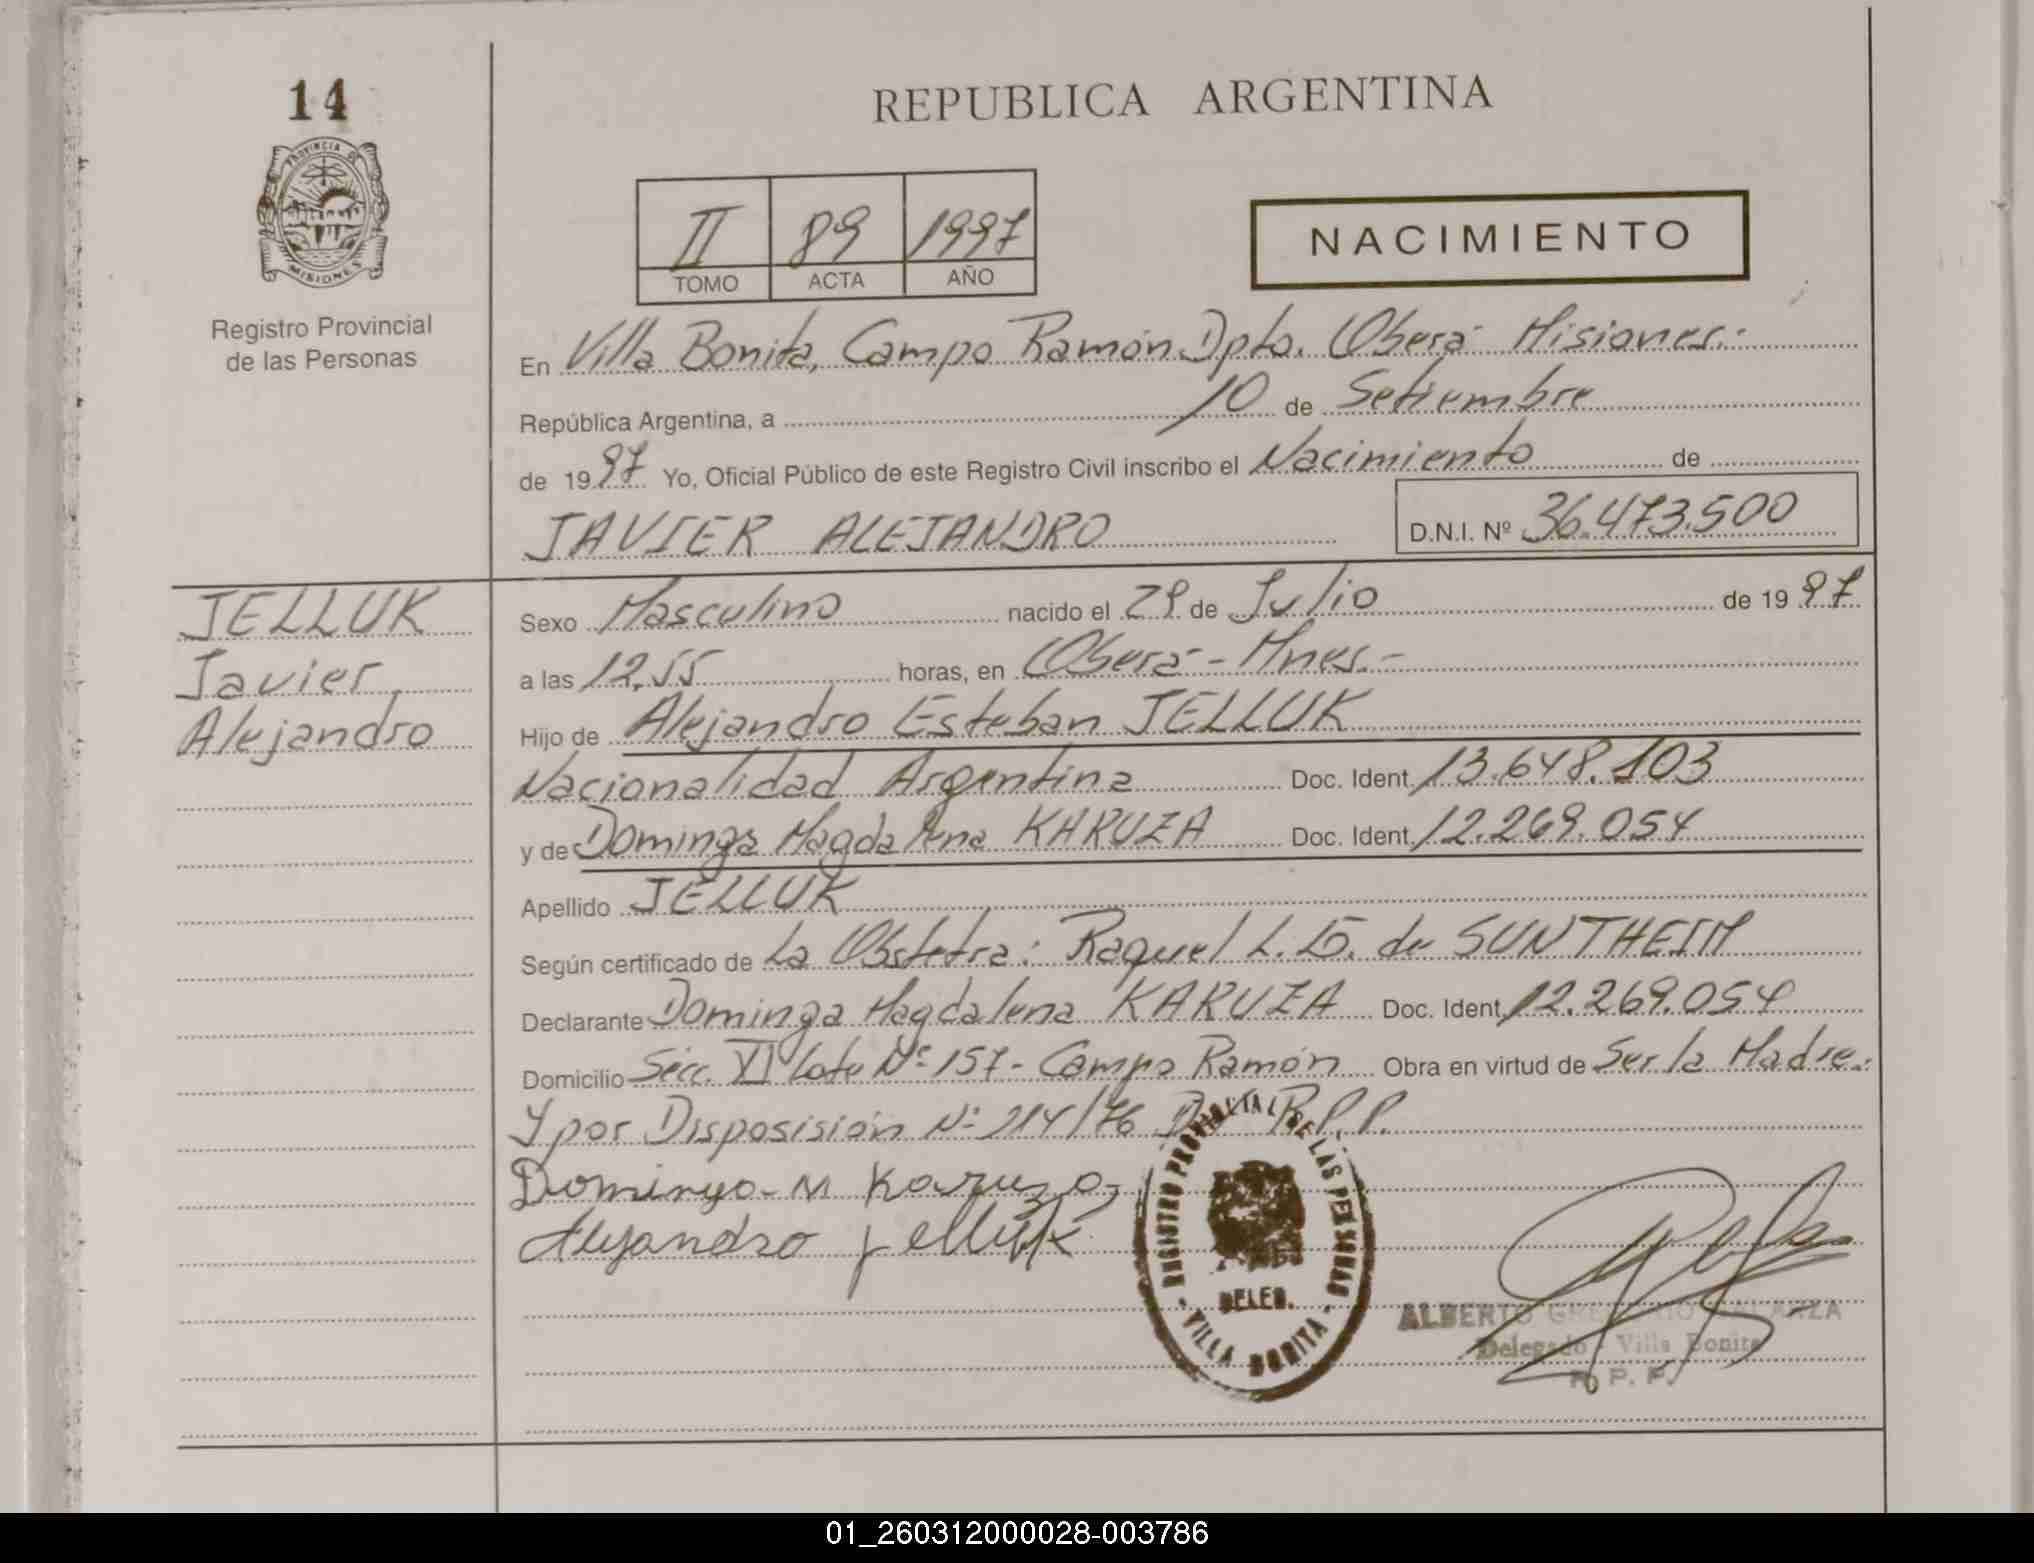 14
PROVINCIA DE
MISIONES
Registro Provincial
de las Personas
REPUBLICA ARGENTINA
II 89 1997
TOMO ACTA AÑO
NACIMIENTO
En Villa Bonita, Campo Ramón Dpto. Oberá Misiones.-
República Argentina, a 10 de Setiembre
de 1997 Yo, Oficial Público de este Registro Civil inscribo el Nacimiento de
JAVIER ALEJANDRO D.N.I. Nº 36.473.500
JELLUK
Javier
Alejandro
Sexo Masculino nacido el 29 de Julio de 1997
a las 12,55 horas, en Oberá - Mnes.-
Hijo de Alejandro Esteban JELLUK
Nacionalidad Argentina Doc. Ident. 13.648.103
y de Dominga Magdalena KARUZA Doc. Ident. 12.269.054
Apellido JELLUK
Según certificado de La Obstetra: Raquel L. de SUNTHEIM
Declarante Dominga Magdalena KARUZA Doc. Ident. 12.269.054
Domicilio Secc. VI Lote Nº 157 - Campo Ramón Obra en virtud de Ser la Madre.
Y por Disposisión Nº 214/76 R.P.P.
Dominga M Karuza
Alejandro Jelluk
REGISTRO PROVINCIAL DE LAS PERSONAS
DELEG.
- VILLA BONITA -
ALBERTO GREGORIO GALARZA
Delegado - Villa Bonita
R. P. P.
01_260312000028-003786